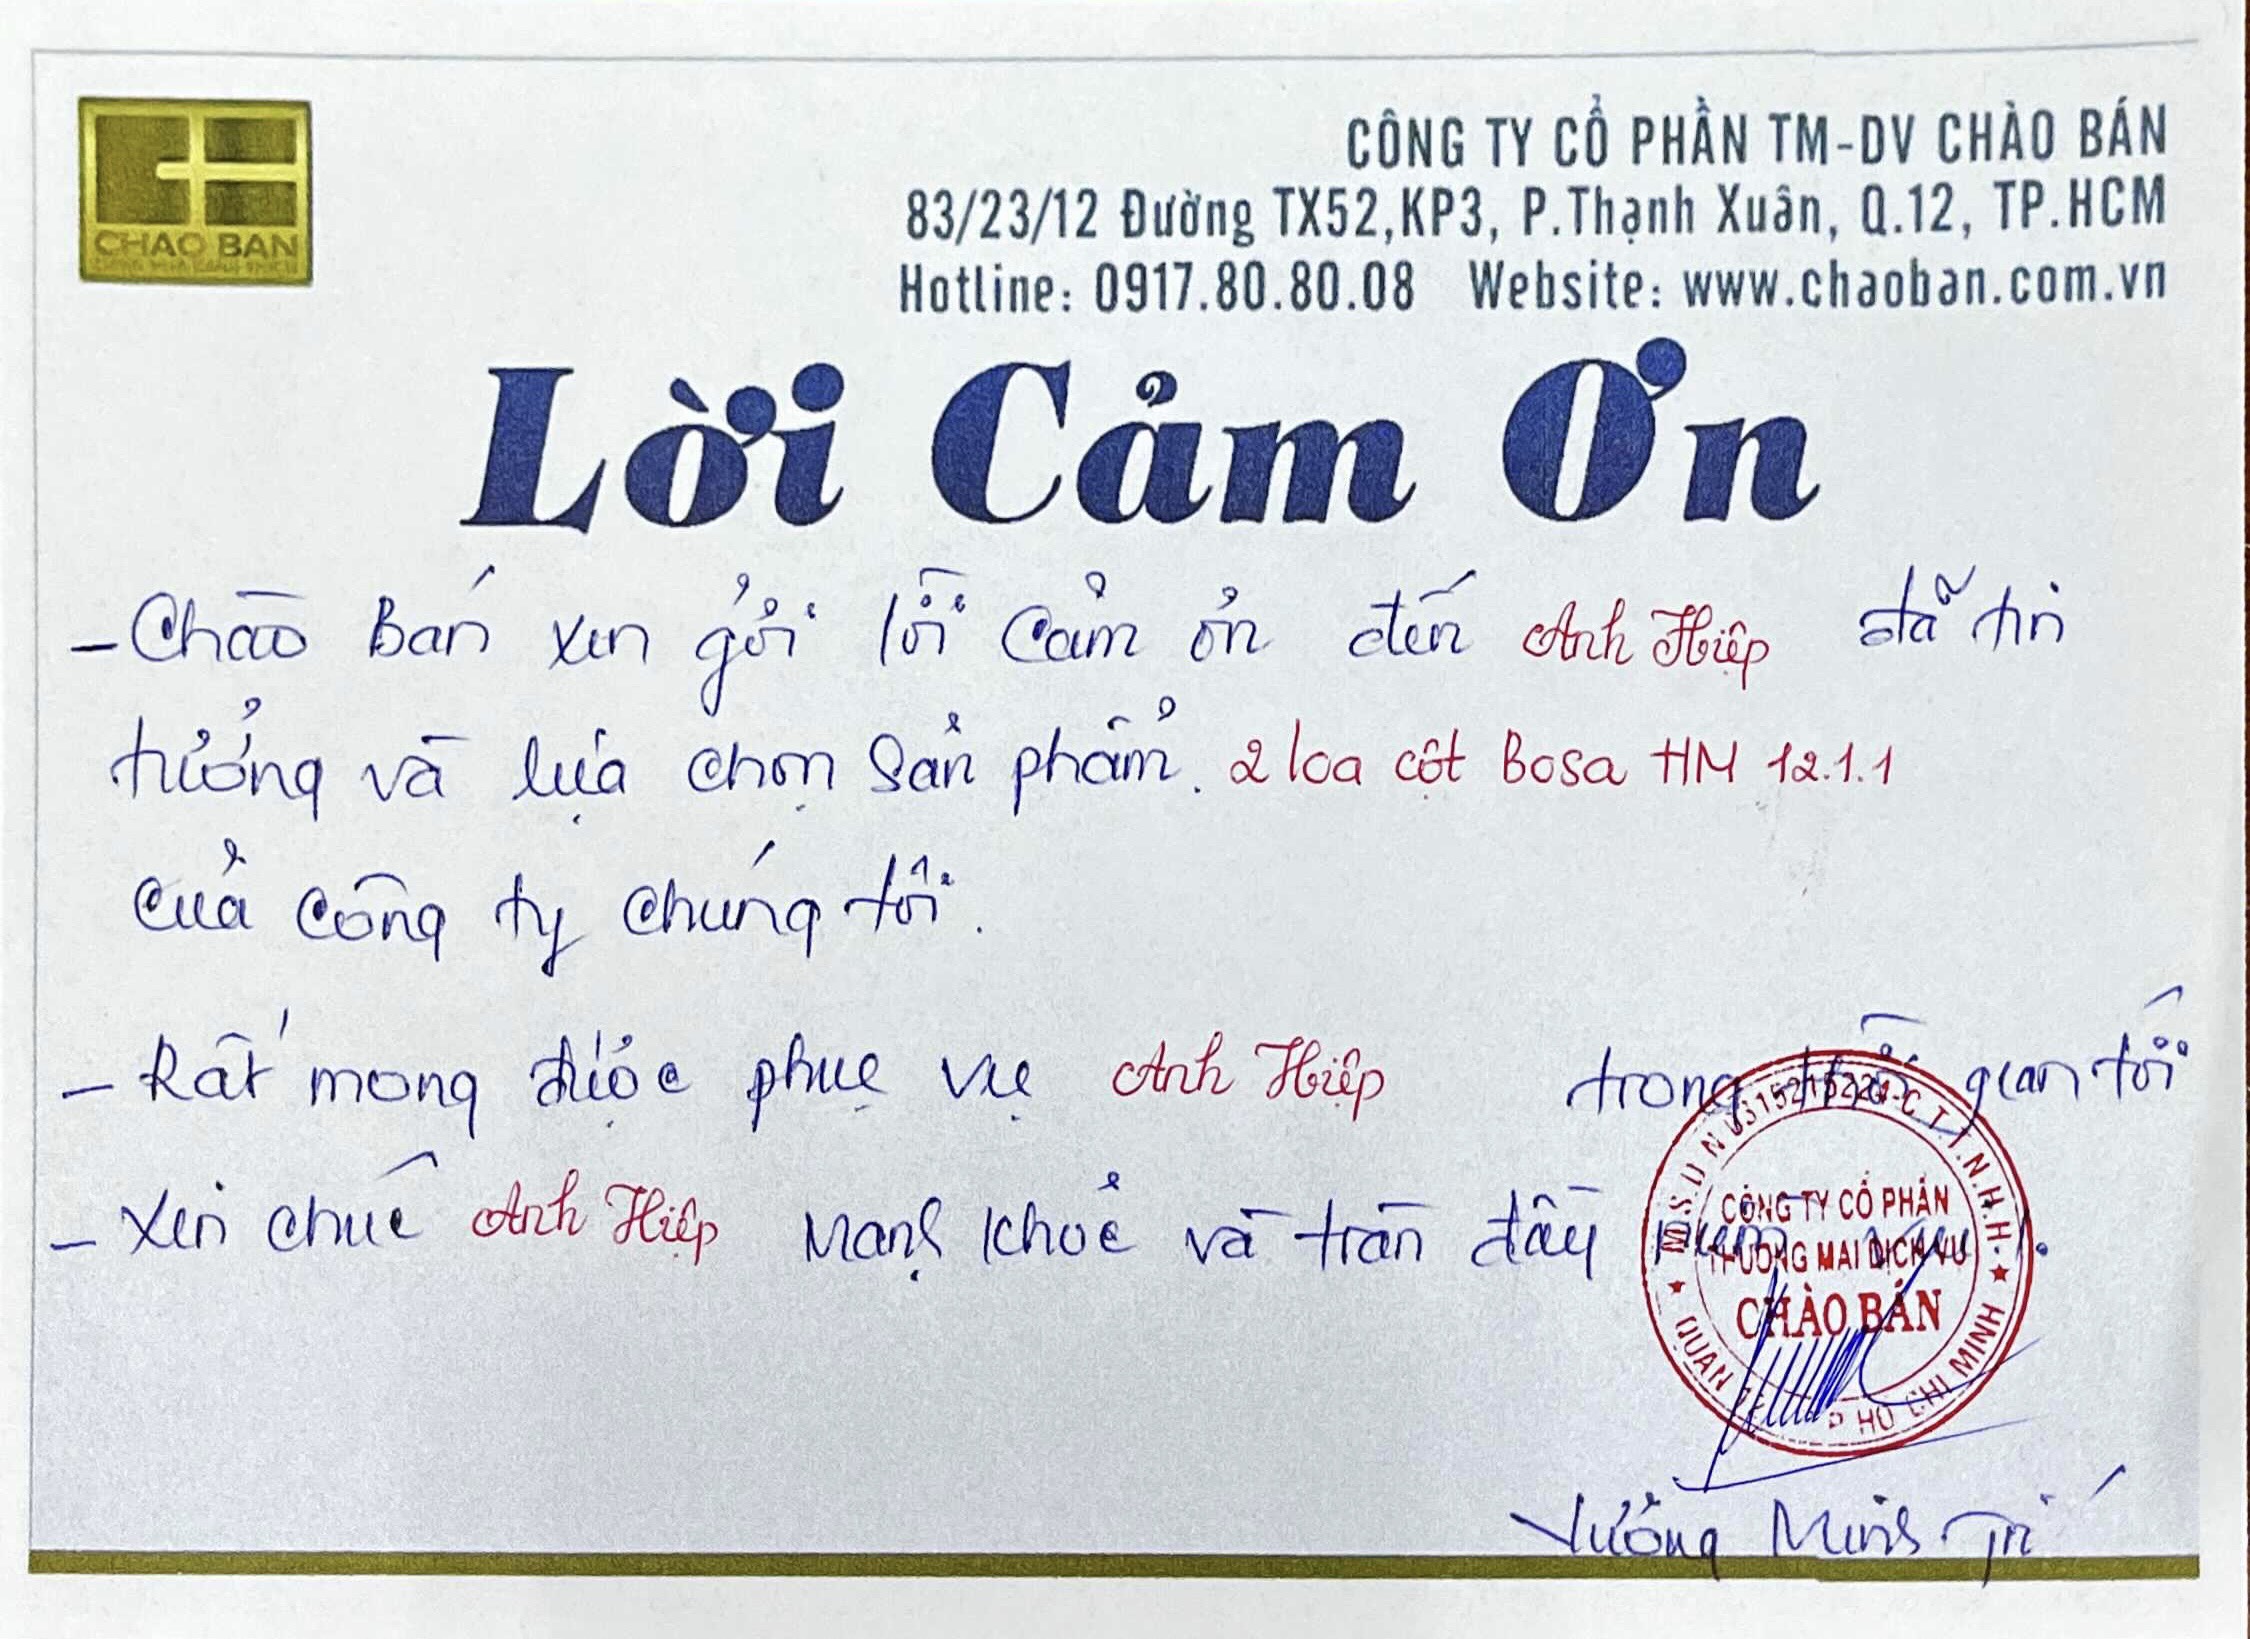 CHAO BAN
CÔNG TY CỔ PHẦN TM-DV CHÀO BÁN
83/23/12 Đường TX52,KP3, P.Thạnh Xuân, Q.12, TP.HCM
Hotline: 0917.80.80.08 Website: www.chaoban.com.vn
Lời Cảm Ơn
- Chào Bán xin gởi lời cảm ơn đến Anh Hiệp đã tin
tưởng và lựa chọn sản phẩm. 2 loa cột Bosa HM 12.1.1
của công ty chúng tôi.
- Rất mong được phục vụ Anh Hiệp trong thời gian tới
- Xin chúc Anh Hiệp mạnh khoẻ và tràn đầy niềm vui.
M.S.D.N 0315215224-C.T.T.N.H.H
CÔNG TY CỔ PHẦN
THƯƠNG MẠI DỊCH VỤ
CHÀO BÁN
QUẬN P HỒ CHÍ MINH
Vương Minh Trí